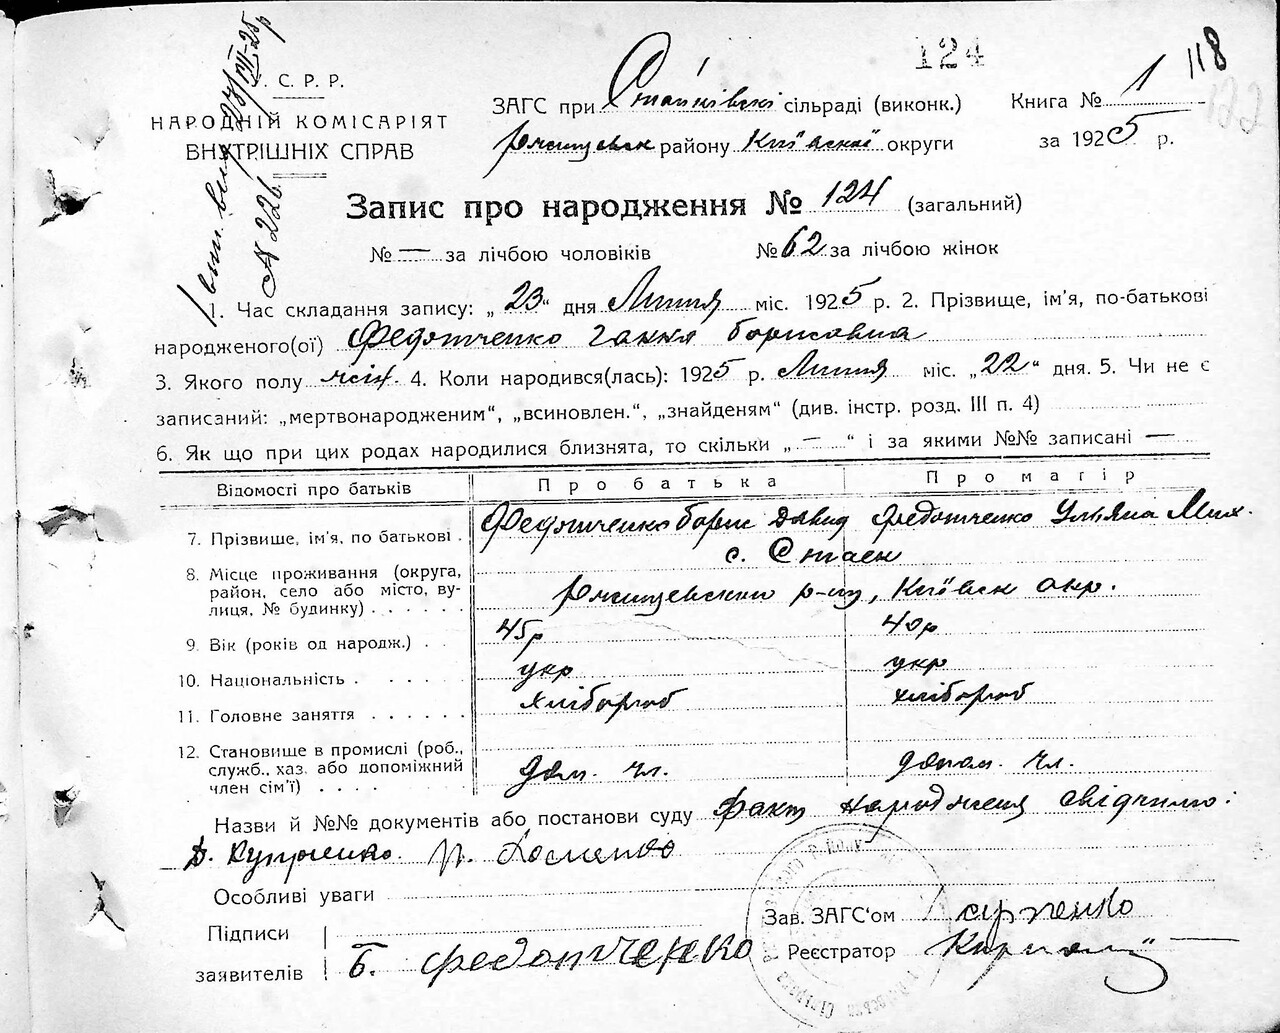 124
118
С. Р. Р.
НАРОДНІЙ КОМІСАРІЯТ
ВНУТРІШНІХ СПРАВ
№ 226
ЗАГС при Стайківскі сільраді (виконк.)
Ржищевск району Київскої округи
Книга № 1
за 1925 р.
Запис про народження № 124 (загальний)
№ — за лічбою чоловіків № 62 за лічбою жінок
1. Час складання запису: „23“ дня Липня міс. 1925 р. 2. Прізвище, ім'я, по-батькові
народженого(ої) Федотченко Ганна Борисовна
3. Якого полу жін. 4. Коли народився(лась): 1925 р. Липня міс. „22“ дня. 5. Чи не є
записаний: „мертвонародженим“, „всиновлен.“, „знайденям“ (див. інстр. розд. III п. 4)
6. Як що при цих родах народилися близнята, то скільки „—“ і за якими №№ записані —
Відомості про батьків Про батька Про матір
7. Прізвище, ім'я, по батькові . Федотченко Борис Давид Федотченко Ульяна Мих.
8. Місце проживання (округа, район, село або місто, вулиця, № будинку) . . . . . . с. Стаєк
Ржищевского р-ну, Київск окр.
9. Вік (років од народж.) . . 45р 40р
10. Національність . . . . . укр укр
11. Головне заняття . . . . . . хлібороб хлібороб
12. Становище в промислі (роб., служб., хаз. або допоміжний член сім'ї) . . . . дом. чл. допом. чл.
Назви й №№ документів або постанови суду Факт народженя свідчимо:
Особливі уваги
Підписи
заявителів Б. Федотченко
Зав. ЗАГС'ом
Реєстратор